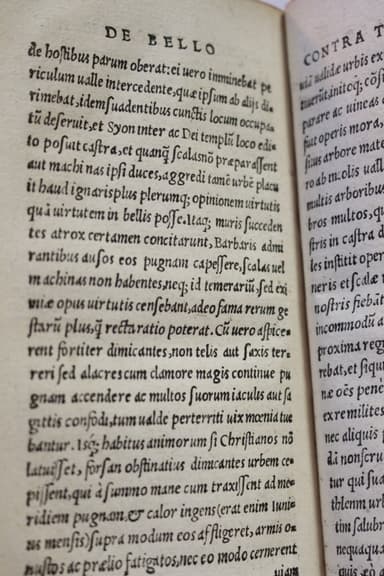 DE BELLO
de hostibus parum oberat: ei uero imminebat pe
riculum ualle intercedente, quæ ipsum ab alijs di-
rimebat, idem suadentibus cunctis locum occupa
tū deseruit, et Syon inter ac Dei templū loco edi-
to posuit castra, et quanq̃ scalas nō præparassent
aut machinas ipsi duces, aggredi tamē urbē placu
it haud ignaris plus plerumq; opinionem uirtutis
quã uirtutem in bellis posse. Itaq; muris succeden
tes atrox certamen concitarunt, Barbaris admi
rantibus ausos eos pugnam capessere, scalas uel
machinas non habentes, neq; id temerariũ, sed exi
miæ opus uirtutis censebant, adeo fama rerum ge
starũ plus, q̃ recta ratio poterat. Cũ uero aspice-
rent fortiter dimicantes, non telis aut saxis ter-
reri sed alacres cum clamore magis continue pu
gnam accendere ac multos suorum iaculis aut sa
gittis confodi, tum ualde perterriti uix mœnia tue
bantur. Isq; habitus animorum si Christianos nō
latuisset, forsan obstinatius dimicantes urbem ce-
pissent, qui à summo mane cum traxissent ad me-
ridiem pugnam, & calor ingens (erat enim Iunij
us mensis) supra modum eos affligeret, armis o-
nustos ac prælio fatigatos, nec eo modo cernerent
uiam
CONTRA T
uiā ualidæ urbis ex
parare ac uineas
fiunt operis mora,
situs arbore mate
multis arboribus
bros multos, qu
stris in castra d
les instititoper
neris et scalæ
nostris fiebāt
incommodũ a
proxima reg
rebat, et siqu
næ oēs pene
ex re milites
nec aliquis p
dā non scru
tur qui sua
thleem urb
tim salubr
nequaqua